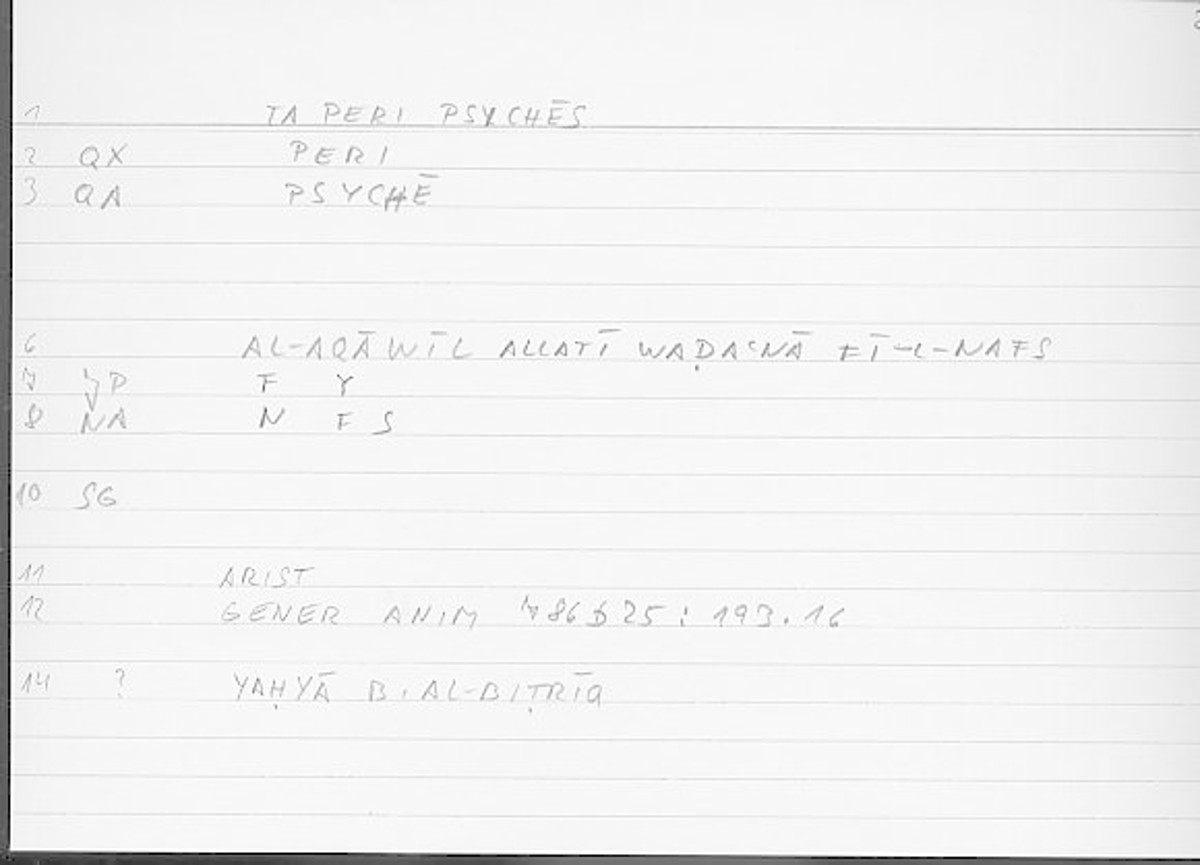 1 TA PERI PSYCHĒS
2 QX PERI
3 QA PSYCHĒ
6 AL-AQĀWĪL ALLATĪ WAḌAʿNĀ FĪ-L-NAFS
7 P F Y
8 NA N F S
10 SG
11 ARIST
12 GENER ANIM 786b25 : 193.16
14 ? YAḤYĀ B. AL-BIṬRĪQ